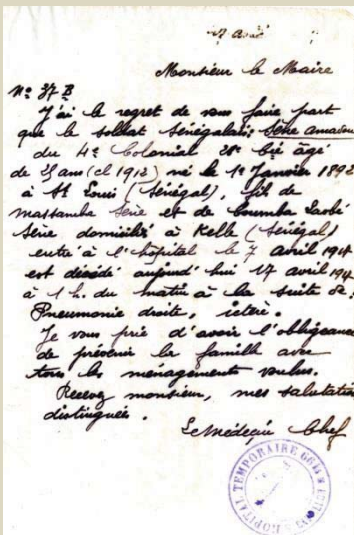 17 avril
Monsieur le Maire
No 37 B
J'ai le regret de vous faire part
que le soldat Sénégalais Sène Amadou
du 4e Colonial 28e Cie âgé
de ans (cl 1912) né le 1er Janvier 1892
à St Louis (Sénégal), fils de
Massamba Sène et de Coumba
Sène domicilié à Kelle (Sénégal)
entré à l'hôpital le 7 avril
est décédé aujourd'hui 17 avril
à 1 h. du matin à la suite de :
Pneumonie droite, ictère.
Je vous prie d'avoir l'obligeance
de prévenir la famille avec
tous les ménagements voulus.
Recevez monsieur, mes salutations
distinguées.
Le Médecin Chef
HOPITAL TEMPORAIRE